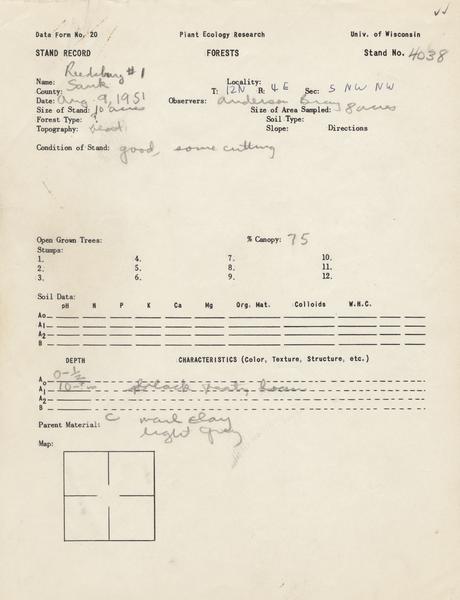 Data Form No. 20 Plant Ecology Research Univ. of Wisconsin
STAND RECORD FORESTS Stand No. 4038
Name: Reedsburg #1 Locality:
County: Sauk T: 12N R: 4 E Sec: 5 NW NW
Date: Aug. 9, 1951 Observers: Anderson Bray
Size of Stand: 10 acres Size of Area Sampled: 8 acres
Forest Type: ? Soil Type:
Topography: Slope: Directions
Condition of Stand: good, some cutting
Open Grown Trees: % Canopy: 75
Stumps:
1. 4. 7. 10.
2. 5. 8. 11.
3. 6. 9. 12.
Soil Data:
pH N P K Ca Mg Org. Mat. Colloids W.H.C.
A₀
A₁
A₂
B
DEPTH CHARACTERISTICS (Color, Texture, Structure, etc.)
A₀ 0-½
A₁ black
A₂
B
Parent Material: C marl clay
light gray
Map: